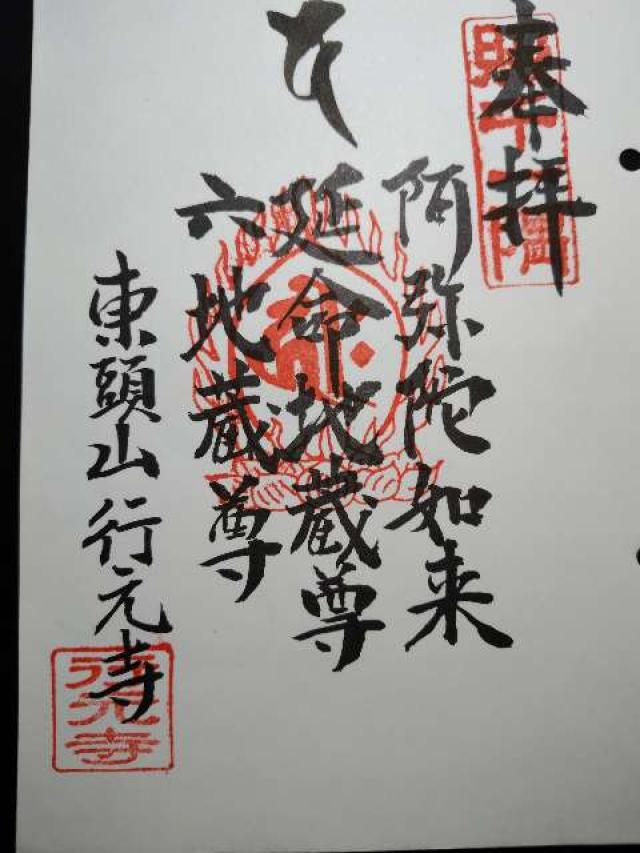 奉拝
阿弥陀如来
延命地蔵尊
六地蔵尊
東頭山行元寺
行元寺